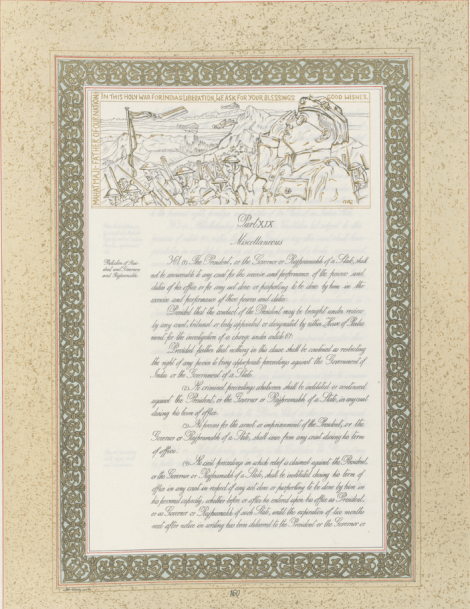 IN THIS HOLY WAR FOR INDIA'S LIBERATION, WE ASK FOR YOUR BLESSINGS GOOD WISHES.
MAHATMAJI FATHER OF THE NATION
Part XIX
Miscellaneous
Protection of Presi-
dent and Governors
and Rajpramukhs.
361. (1) The President, or the Governor or Rajpramukh of a State, shall
not be answerable to any court for the exercise and performance of the powers and
duties of his office or for any act done or purporting to be done by him in the
exercise and performance of those powers and duties:
Provided that the conduct of the President may be brought under review
by any court, tribunal or body appointed or designated by either House of Parlia-
ment for the investigation of a charge under article 61:
Provided further that nothing in this clause shall be construed as restricting
the right of any person to bring appropriate proceedings against the Government of
India or the Government of a State.
(2) No criminal proceedings whatsoever shall be instituted or continued
against the President, or the Governor or Rajpramukh of a State, in any court
during his term of office.
(3) No process for the arrest or imprisonment of the President, or the
Governor or Rajpramukh of a State, shall issue from any court during his term
of office.
(4) No civil proceedings in which relief is claimed against the President,
or the Governor or Rajpramukh of a State, shall be instituted during his term of
office in any court in respect of any act done or purporting to be done by him in
his personal capacity, whether before or after he entered upon his office as President,
or as Governor or Rajpramukh of such State, until the expiration of two months
next after notice in writing has been delivered to the President or the Governor or
160